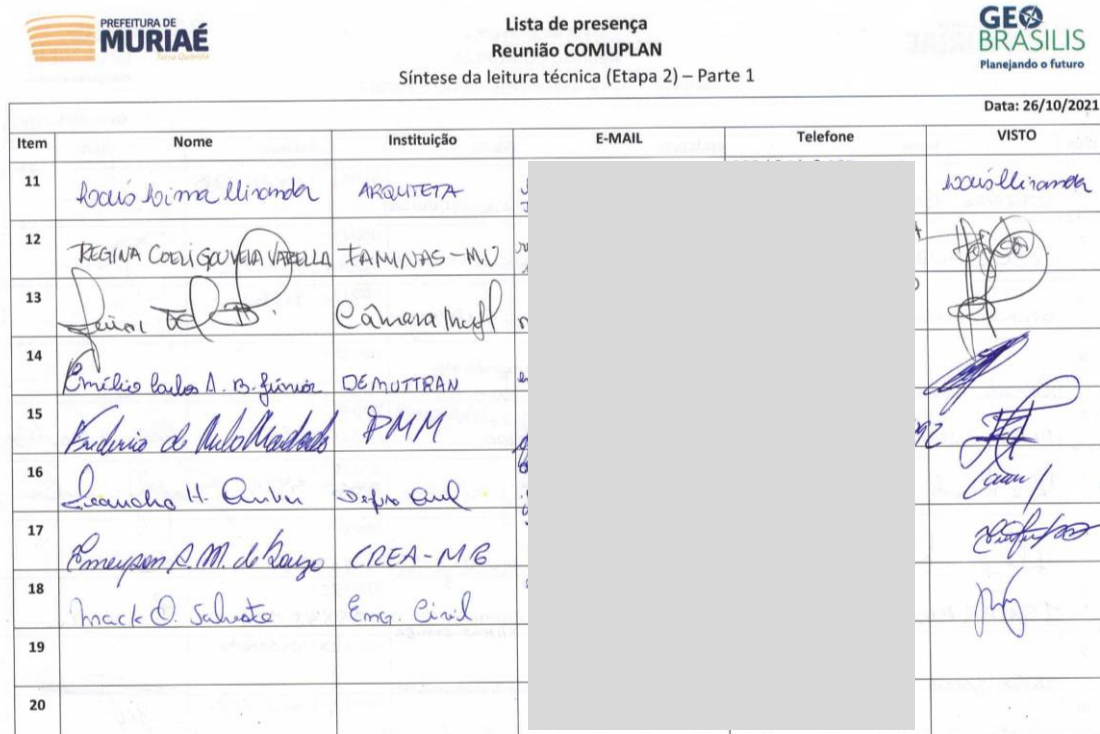 PREFEITURA DE
MURIAÉ
Terra Querida
Lista de presença
Reunião COMUPLAN
Síntese da leitura técnica (Etapa 2) – Parte 1
GEO
BRASILIS
Planejando o futuro
Data: 26/10/2021
Item Nome Instituição E-MAIL Telefone VISTO
11 Laís Lima Miranda ARQUITETA Laís Miranda
12 REGINA COELI GOUVEIA VARELLA FAMINAS-MU
13 Câmara
14 Emílio Carlos A. B. Júnior DEMUTTRAN
15 de Melo Machado PMM
16 Leandro H.
17 Emerson R. M. de Souza CREA-MG
18 Mack O. Eng. Civil
19
20